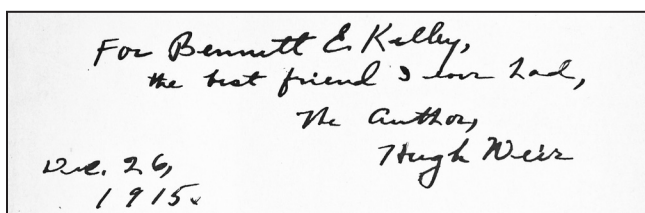 For Bennett E. Kelley,
the best friend I ever had,
The Author,
Hugh Weir
Dec. 26,
1915.